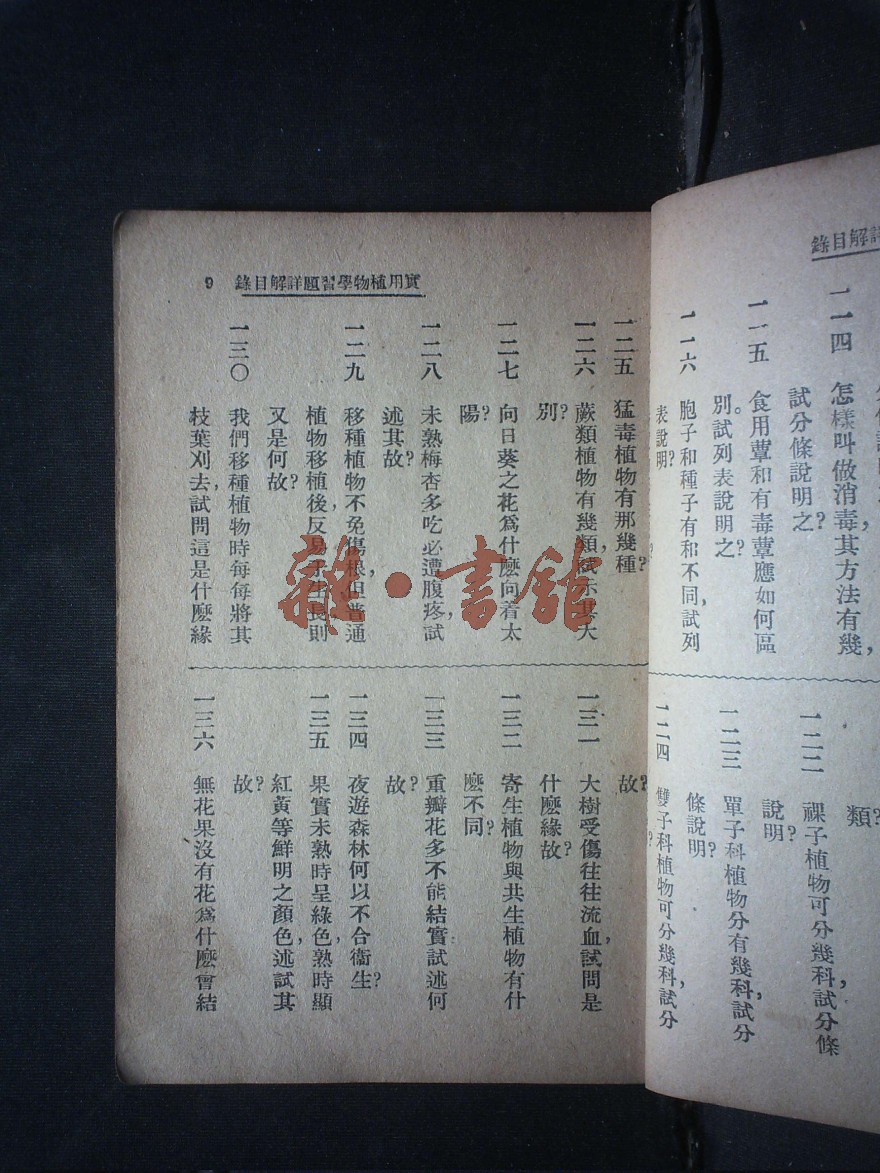 詳解目錄
一一四 怎樣叫做消毒,其方法有幾,
試分條說明之?
一一五 食用蕈和有毒蕈應如何區
別。試列表說明之?
一一六 胞子和種子有和不同,試列
表說明?
類?
一二二 裸子植物可分幾科,試分條
說明?
一二三 單子科植物分有幾科,試分
條說明?
一二四 雙子科植物可分幾科,試分
實用植物學習題詳解目錄 9
一二五 猛毒植物有那幾種?
一二六 蕨類植物有幾類,試示其大
別?
一二七 向日葵之花爲什麽向着太
陽?
一二八 未熟梅杏多吃必遭腹疼,試
述其故?
一二九 移種植物不免傷根,但普通
植物移植後,反易於生長,則
又是何故?
一三〇 我們移種植物時每每將其
枝葉刈去,試問這是什麽緣
故?
一三一 大樹受傷往往流血,試問是
什麽緣故?
一三二 寄生植物與共生植物有什
麽不同?
一三三 重瓣花多不能結實,試述何
故?
一三四 夜遊森林何以不合衞生?
一三五 果實未熟時呈綠色,熟時顯
紅黃等鮮明之顏色,述試其
故?
一三六 無花果沒有花,爲什麽會結
雜·書館